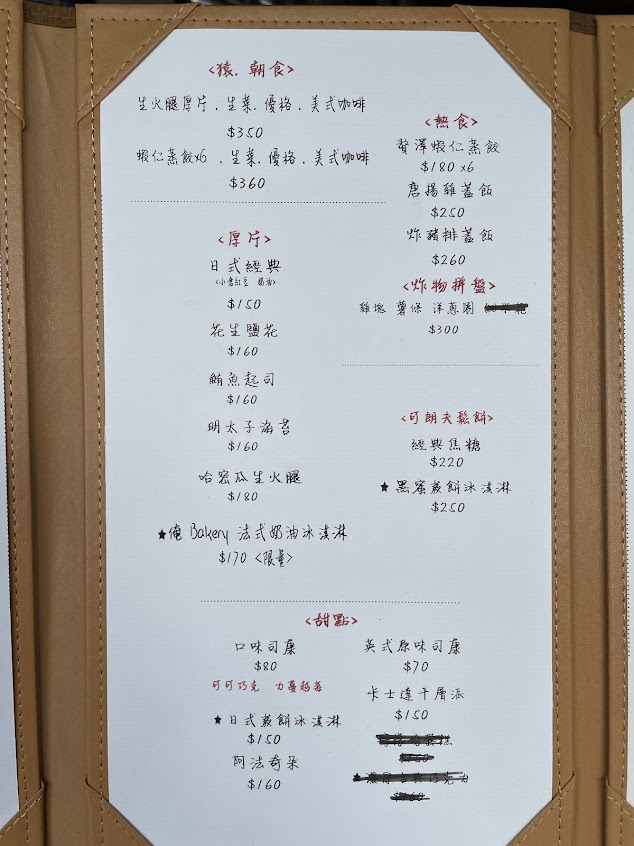 <猿.朝食>
生火腿厚片.生菜.優格.美式咖啡
$350
蝦仁蒸餃x6.生菜.優格.美式咖啡
$360
<厚片>
日式經典
$150
花生鹽花
$160
鮪魚起司
$160
明太子海苔
$160
哈密瓜生火腿
$180
★俺 Bakery 法式奶油冰淇淋
$170 <限量>
<熱食>
贊澤蝦仁蒸餃
$180 x6
唐揚雞蓋飯
$250
炸豬排蓋飯
$260
<炸物拼盤>
雞塊 薯條 洋蔥圈
$300
<可朗夫鬆餅>
經典焦糖
$220
★黑蜜蕨餅冰淇淋
$250
<甜點>
口味司康
$80
可可巧克力 蔓越莓
★日式蕨餅冰淇淋
$150
阿法奇朵
$160
英式原味司康
$70
卡士達千層派
$150